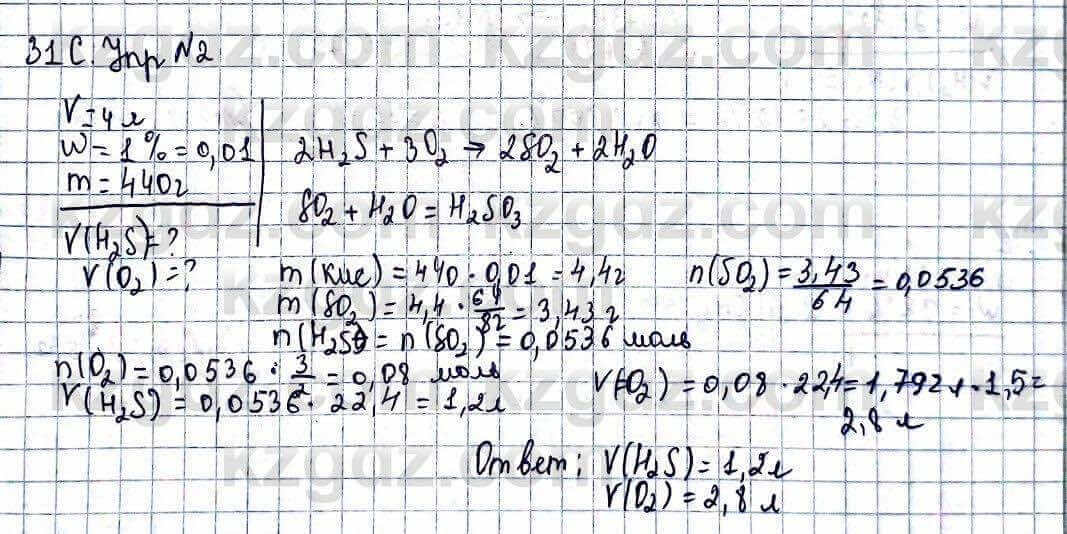 31С. Упр N2
V=4л
W=1%=0,01
m=440г
V(H₂S)=?
V(O₂)=?
2H₂S+3O₂→2SO₂+2H₂O
SO₂+H₂O=H₂SO₃
m(кис)=440·0,01=4,4г
n(SO₂)=3,43/64=0,0536
m(SO₂)=4,4·64/82=3,43г
n(H₂S)=n(SO₂)=0,0536 моль
n(O₂)=0,0536·3/2=0,08 моль
V(H₂S)=0,0536·22,4=1,2л
V(O₂)=0,08·22,4=1,792л·1,5=
2,8л
Ответ: V(H₂S)=1,2л
V(O₂)=2,8л
kzgdz.com kzgdz.com kzgdz.com